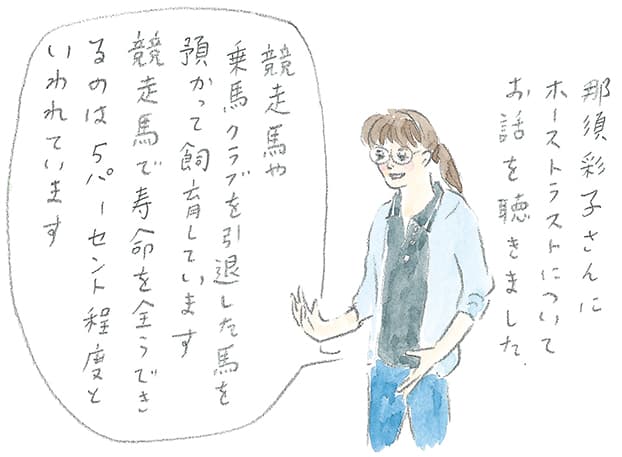 那須彩子さんに
ホーストラストについて
お話を聴きました.
競走馬や
乗馬クラブを引退した馬を
預かって飼育しています
競走馬で寿命を全うでき
るのは5パーセント程度と
いわれています